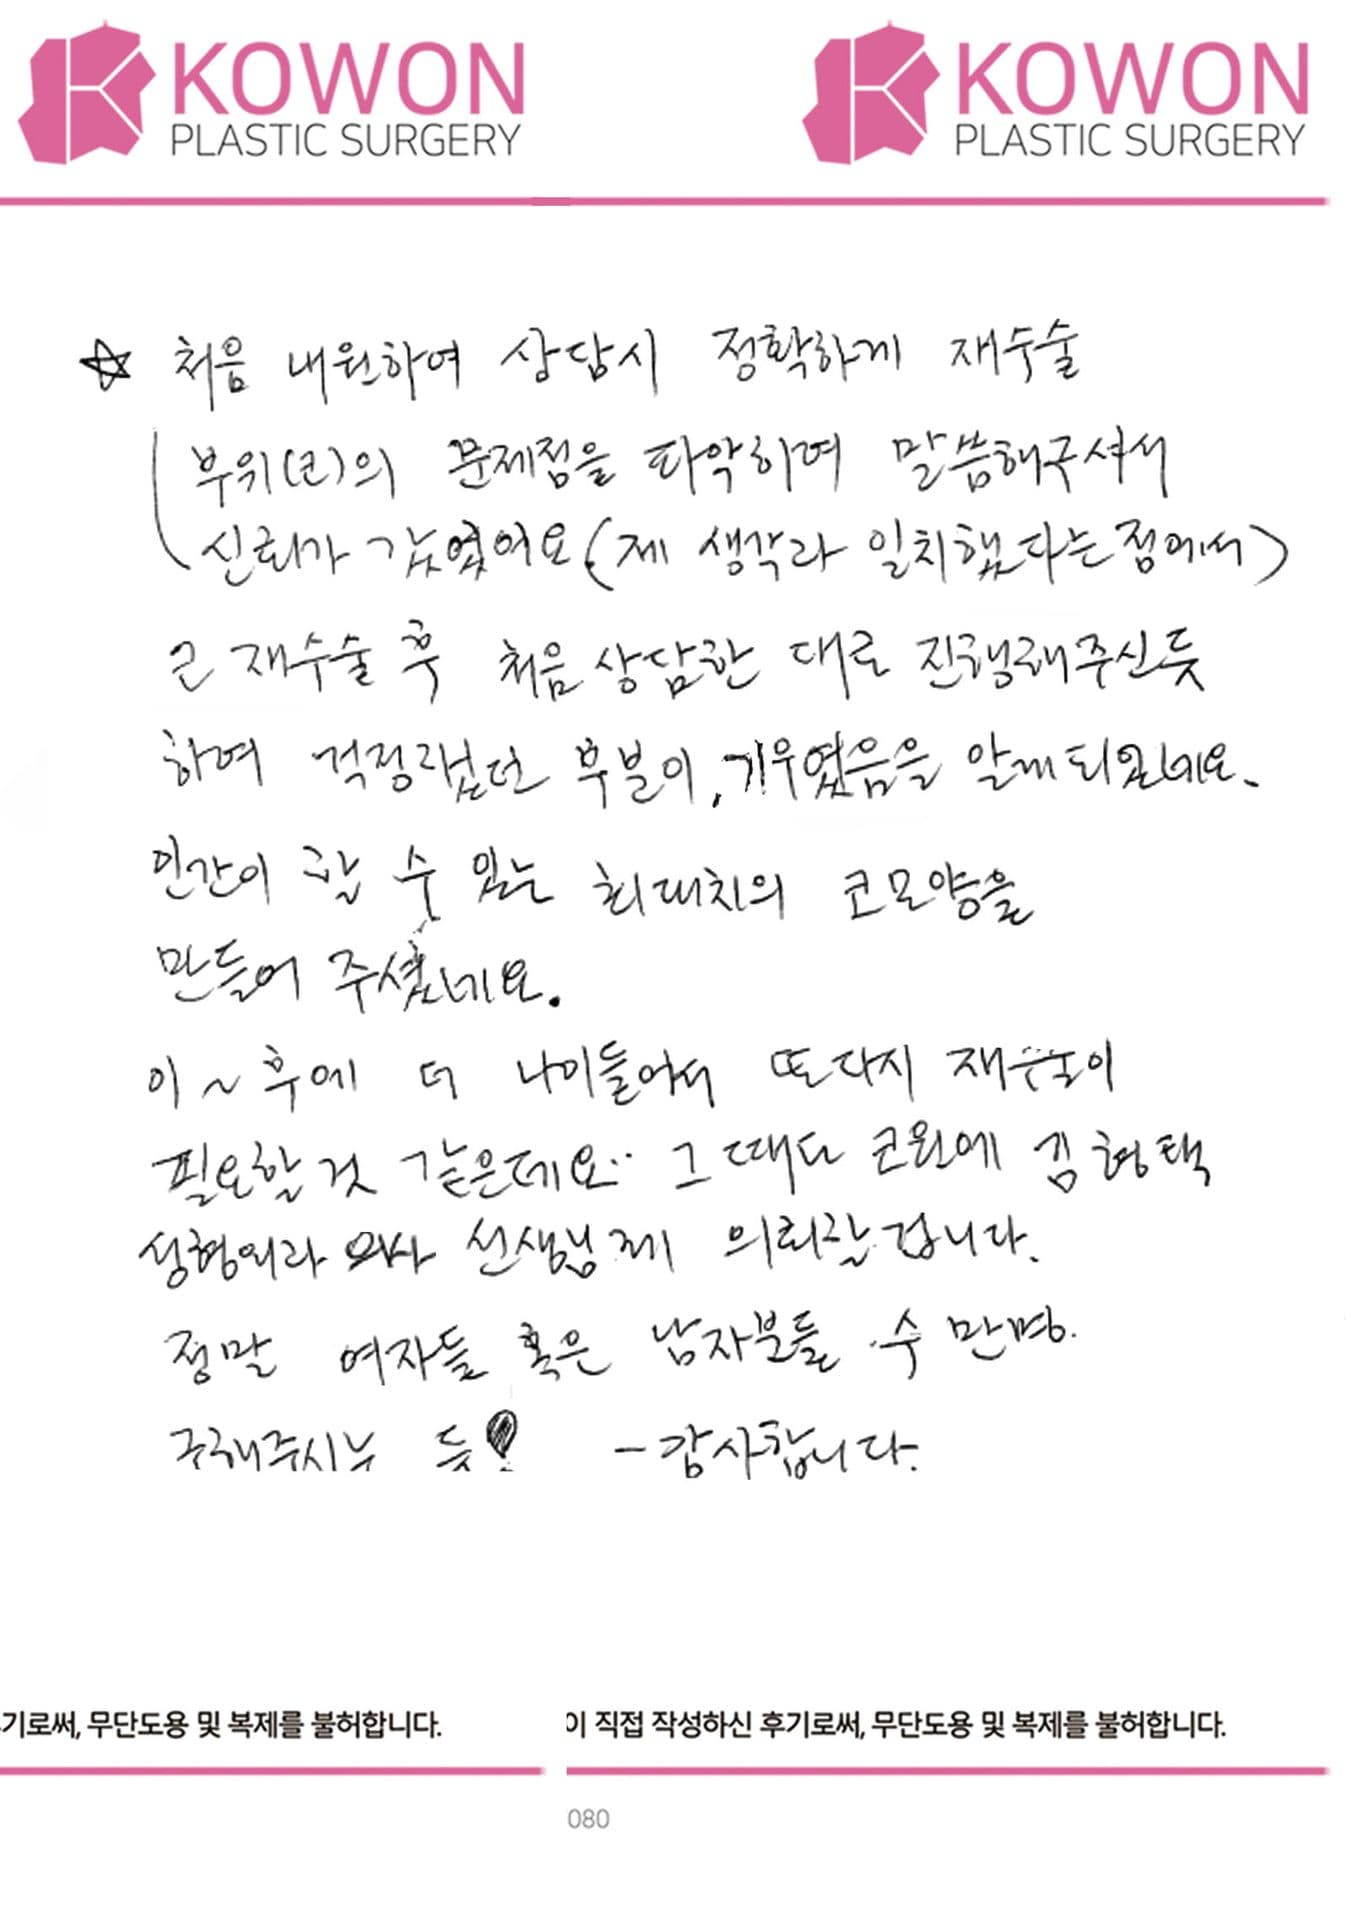 KOWON KOWON
PLASTIC SURGERY PLASTIC SURGERY
☆ 처음 내원하여 상담시 정확하게 재수술
부위(코)의 문제점을 파악하여 말씀해주셔서
신뢰가 갔었어요 (제 생각과 일치했다는점에서)
코 재수술 후 처음 상담한 대로 진행해주신듯
하여 걱정스럽던 부분이, 기우였음을 알게되었네요.
인간이 할 수 있는 최대치의 코모양을
만들어 주셨네요.
이~후에 더 나이들어서 또다시 재수술이
필요할것 같은데요.. 그때도 코원에 김형택
성형외과 의사 선생님께 의뢰할겁니다.
정말 여자들 혹은 남자분들 수 만명.
구해주시는 듯! -감사합니다.
기로써, 무단도용 및 복제를 불허합니다. 이 직접 작성하신 후기로써, 무단도용 및 복제를 불허합니다.
080